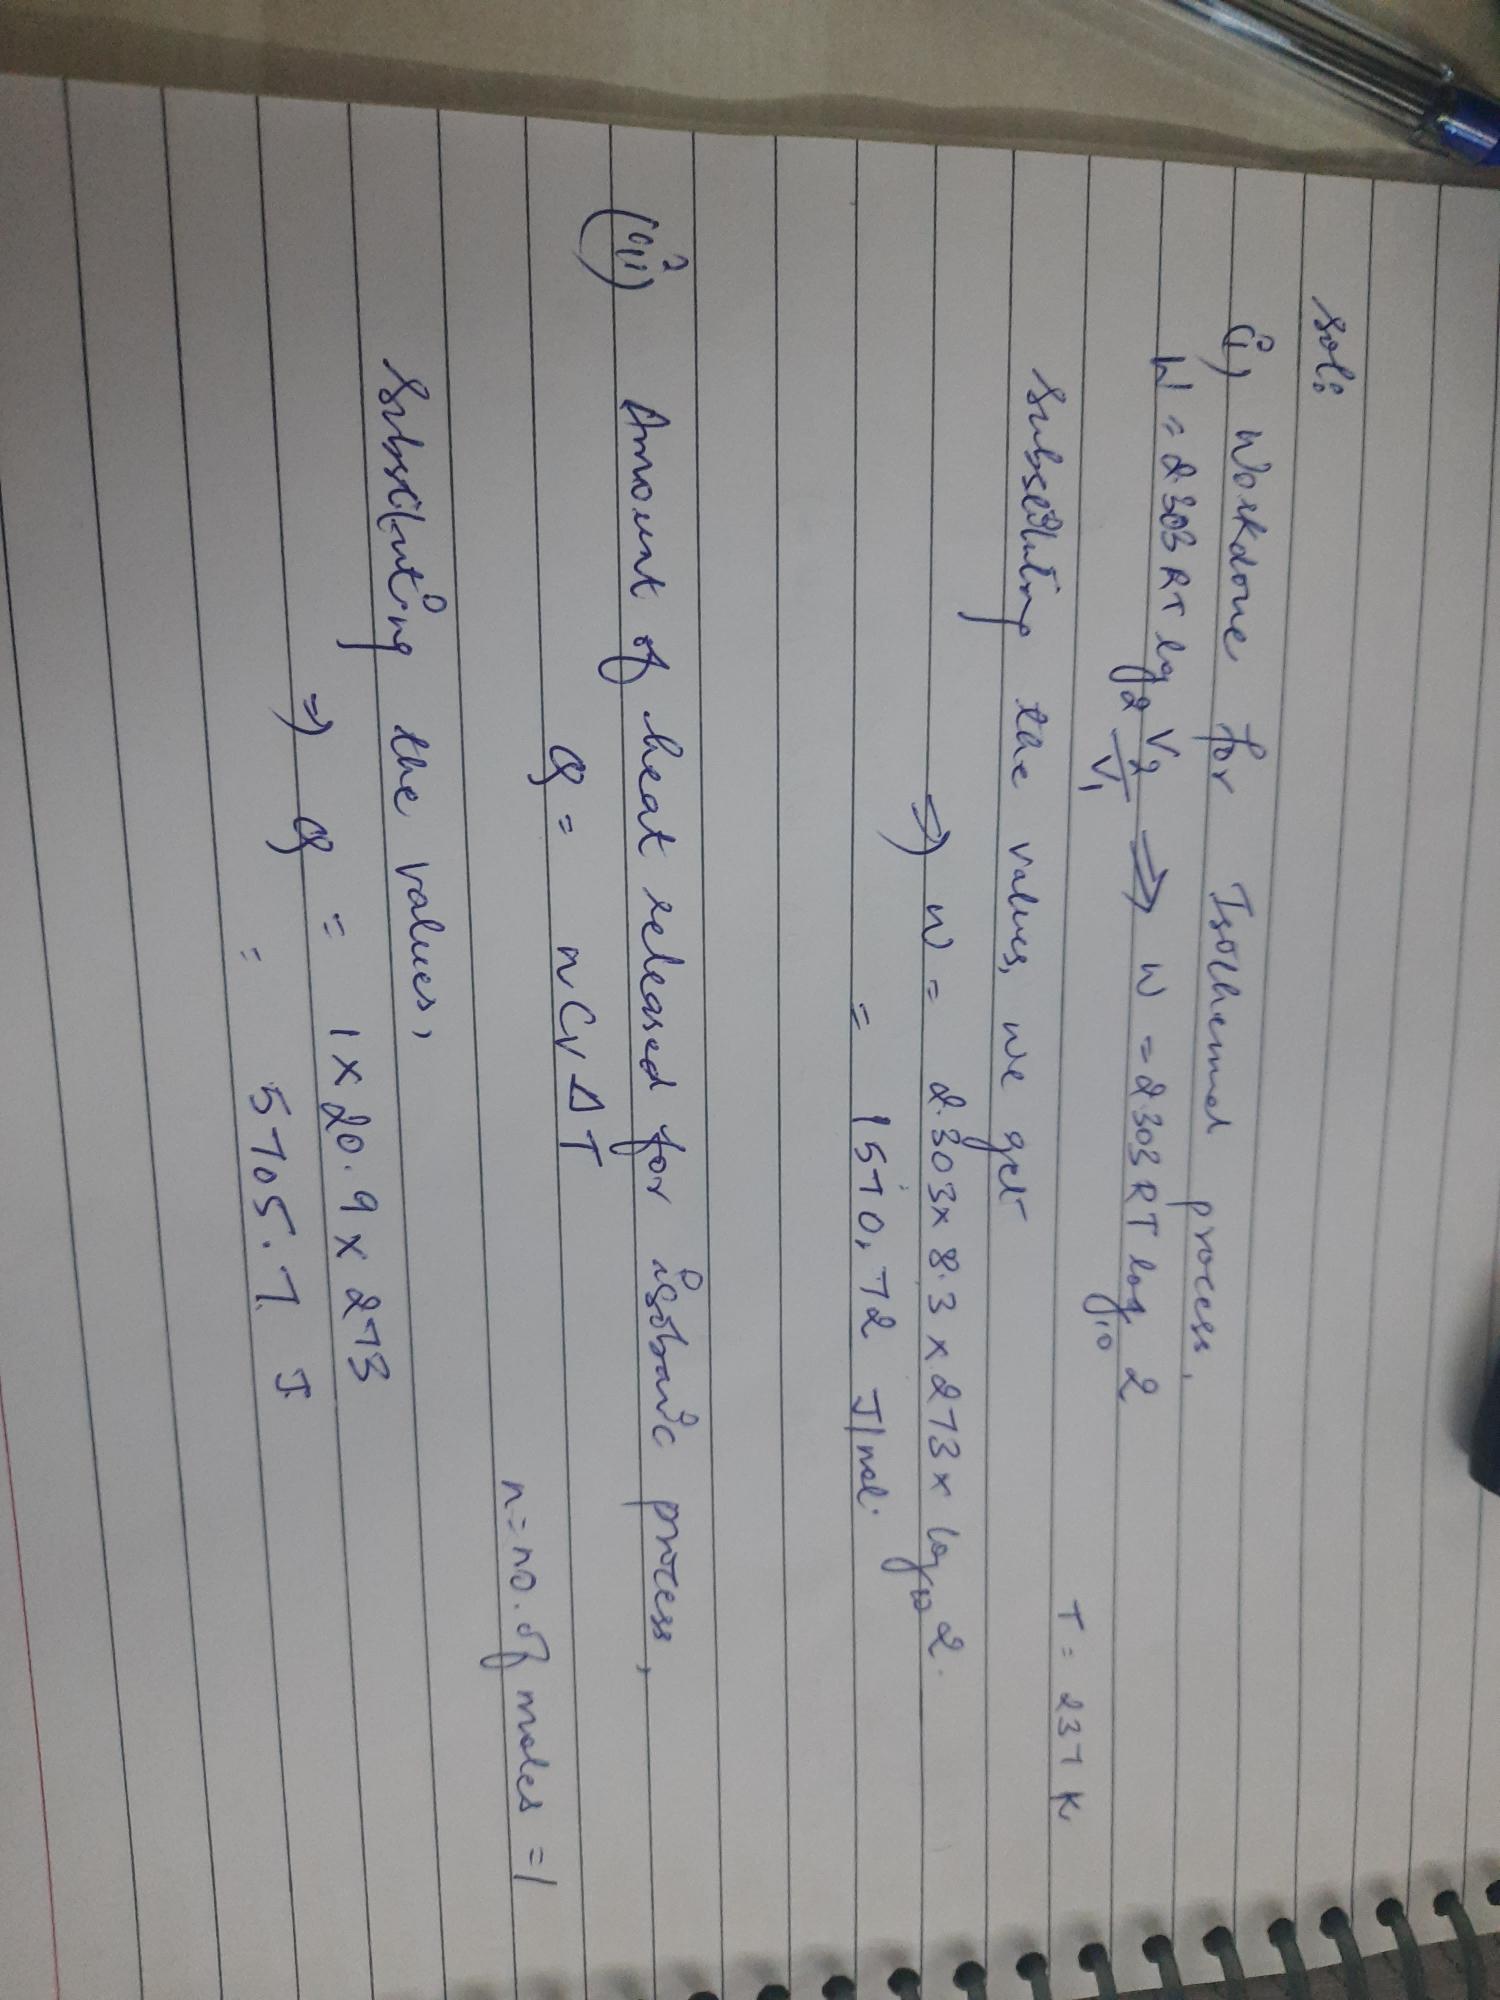 Sol:
(i) Workdone for Isothermal process,
W = 2.303 RT log₂ V₂/V₁ ⇒ W = 2.303 RT log₁₀ 2
T = 237 K
Substituting the values, we get
⇒ W = 2.303 x 8.3 x 273 x log₁₀ 2.
= 1570.72 J/mol.
(iii) Amount of heat released for isobaric process,
Q = n Cv ΔT
n = no. of moles = 1
Substituting the values,
⇒ Q = 1 x 20.9 x 273
= 5705.7 J